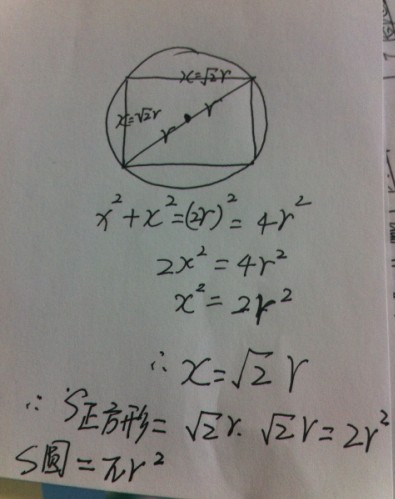 x=√2r
x=√2r
r
r
x²+x²=(2r)²=4r²
2x²=4r²
x²=2r²
∴ x=√2 r
∴ S正方形= √2r. √2r=2r²
S圆=πr²